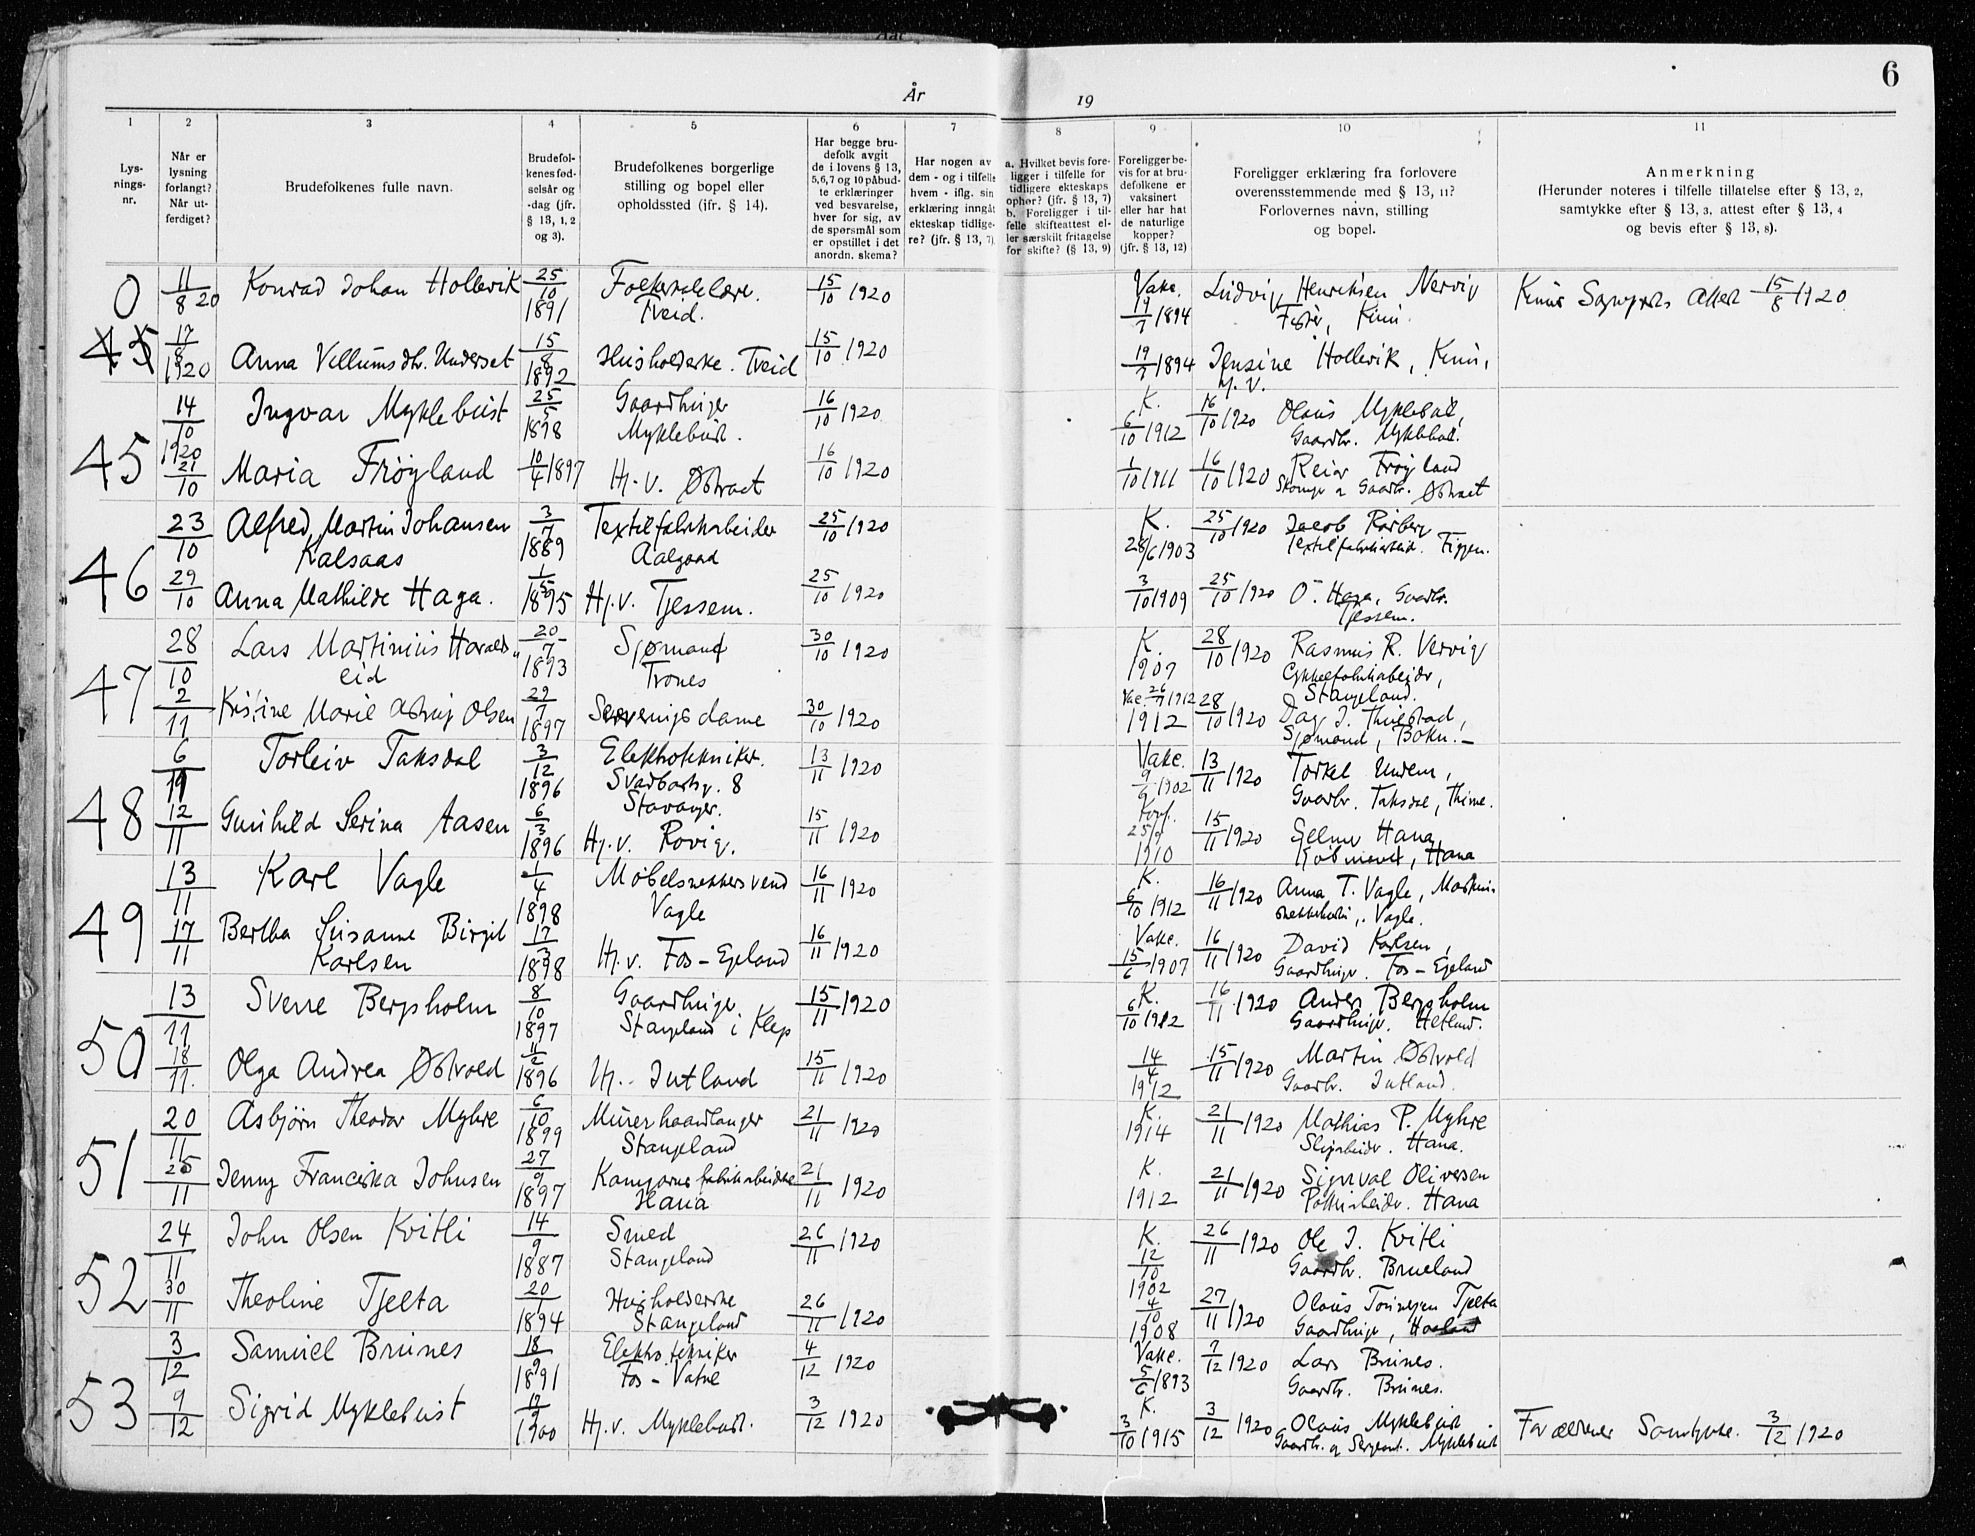 6
År 19
1 2 3 4 5 6 7 8 9 10 11
Lys-
nings-
nr.
Når er
lysning
forlangt?
Når ut-
ferdiget?
Brudefolkenes fulle navn.
Brudefol-
kenes fød-
selsår og
-dag (jfr.
§ 13, 1, 2
og 3).
Brudefolkenes borgerlige
stilling og bopel eller
opholdssted (jfr. § 14).
Har begge bru-
defolk avgit
de i lovens § 13,
5,6,7 og 10 påbud-
te erklæringer
ved besvarelse,
hver for sig, av
de spørsmål som
er opstillet i det
anordn. skema?
Har nogen av
dem - og i tilfelle
hvem - iflg. sin
erklæring inngåt
ekteskap tidlige-
re? (jfr. § 13, 7)
a. Hvilket bevis fore-
ligger i tilfelle for
tidligere ekteskaps
ophør? (jfr. § 13, 7)
b. Foreligger i til-
felle skifteattest el-
ler særskilt fritagelse
for skifte? (§ 13, 9)
Foreligger be-
vis for at bru-
defolkene er
vaksinert
eller har hat
de naturlige
kopper?
(jfr. § 13, 12)
Foreligger erklæring fra forlovere
overensstemmende med § 13, 11?
Forlovernes navn, stilling
og bopel.
Anmerkning
(Herunder noteres i tilfelle tillatelse efter § 13, 2,
samtykke efter § 13, 3, attest efter § 13, 4
og bevis efter § 13, 8).
0 11/8 20 Konrad Johan Hollevik 25/10 1891 Tveid. 15/10 1920 Vakc. 19/7 1894 Ludvig Henriksen Nervig
Fisker, Kinn. Kinns Sogneprests Attest 15/8 1920
45 17/8 1920 Anna Villumsdtr. Underset 15/8 1892 Husholderske. Tveid 15/10 1920 19/7 1894 Jensine Hollevik, Kinn,
H. V.
45 14/10 1920 Ingvar Myklebust 25/5 1898 Gaardbruger
Myklebust. 16/10 1920 K. 6/10 1912 16/10 1920 Olaus Myklebust,
Gaardbr. Myklebust.
21/10 Maria Frøyland 10/4 1897 Hj. v. Østraat 16/10 1920 1/10 1911 16/10 1920 Reier Frøyland
Gaardbr. Østraat
46 23/10 Alfred Martin Johansen
Kalsaas 3/7 1889 Textilfabrikarbeider
Aalgaard 25/10 1920 K. 28/6 1903 25/10 1920 Jacob Rosberg
Textilfabrikarbeid. Figgen.
29/10 Anna Mathilde Haga. 1/5 1895 Hj. v. Tjessem. 25/10 1920 3/10 1909 25/10 1920 O. Haga, Gaardbr.
Tjessem.
47 28/10 Lars Martinius Haralds-
eid 20/7 1893 Sjømand
Trones 30/10 1920 K. 1907 28/10 1920 Rasmus R. Vervig
Cykkelfabrikarbeider,
Stangeland.
2/11 Kristine Marie Astrup Olsen 29/7 1897 Serveringsdame 30/10 1920 Vac. 26/7 1912 1912 28/10 1920 Dag J. Thuestad,
Sjømand, Bokn.
48 6/11 Torleiv Taksdal 3/12 1896 Elektrotekniker.
Svartbakg. 8
Stavanger. 13/11 1920 Vakc. 9/9 1902 13/11 1920 Torkel Undem,
Gaardbr. Taksdal, Thime.
12/11 Gunhild Serina Aasen 6/3 1896 Hj. v. Rovig. 15/11 1920 25/9 1910 15/11 1920 Hana
Kjøbmand, Hana
49 13/11 Karl Vagle 1/4 1898 Møbelsnekkersvend
Vagle 16/11 1920 K. 6/10 1912 16/11 1920 Anna T. Vagle, Maskin-
Vagle.
17/11 Bertha Susanne Birgit
Karlsen 17/3 1898 Hj. v. Fos-Egeland 16/11 1920 Vakc. 15/6 1907 16/11 1920 David Karlsen,
Gaardbruger. Fos-Egeland
50 13/11 Sverre Bergsholm 8/10 1897 Gaardbruger
Stangeland i Klep 15/11 1920 K. 6/10 1912 16/11 1920 Anders Bergsholm
Gaardbruger. Hetland.
18/11 Olga Andrea Østvold 11/2 1896 Hj. - Jutland 15/11 1920 14/4 1912 15/11 1920 Martin Østvold
Gaardbr. Jutland.
51 20/11 Asbjørn Theodor Myhre 6/10 1899 Murerhaandlanger
Stangeland 21/11 1920 K. 1914 21/11 1920 Mathias P. Myhre
Sliparbeider. Hana.
25/11 Jenny Franciska Johnsen 27/9 1897 Kamgarnsfabrikarbeiderske
Hana 21/11 1920 K. 1912 21/11 1920 Sigurval Oliversen
Hana
52 24/11 John Olsen Kvitli 14/9 1887 Smed
Stangeland 26/11 1920 K. 12/10 1902 26/11 1920 Ole J. Kvitli
Gaardbr. Brueland
30/11 Theoline Tjelta 20/1 1894 Husholderske
Stangeland 26/11 1920 4/10 1908 27/11 1920 Olaus Tonnesen Tjelta
Gaardbruger, Haaland
53 3/12 Samuel Brunes 18/9 1891 Elektrotekniker
Fos-Vatne 4/12 1920 Vakc. 5/6 1893 7/12 1920 Lars Brunes.
Gaardbr. Brunes.
9/12 Sigrid Myklebust 19/9 1900 Hj. v. Myklebust. 3/12 1920 K. 3/10 1915 3/12 1920 Olaus Myklebust
Gaardbr. og Sergeant. Myklebust Forældrenes Samtykke. 3/12 1920